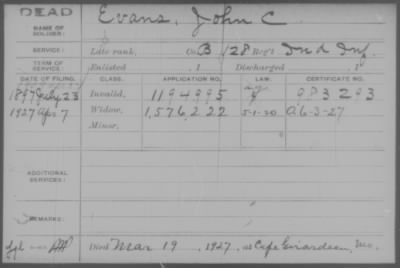 DEAD
NAME OF SOLDIER: Evans, John C
SERVICE: Late rank, Co. B 128 Reg't Ind Inf.
TERM OF SERVICE: Enlisted , 1 Discharged , 1
DATE OF FILING. CLASS. APPLICATION NO. LAW. CERTIFICATE NO.
1897 July 23 Invalid, 1194995 983293
1927 Apr 7 Widow, 1,576,222 5-1-20 A6-3-27
Minor,
ADDITIONAL SERVICES:
REMARKS:
Died Mar 19, 1927, at Cape Girardeau, Mo.